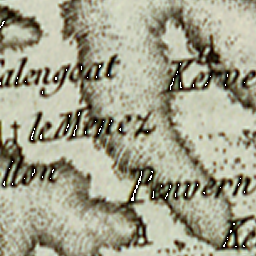 alengoat
Kerve
le Menez
llon
Penvern
Ke